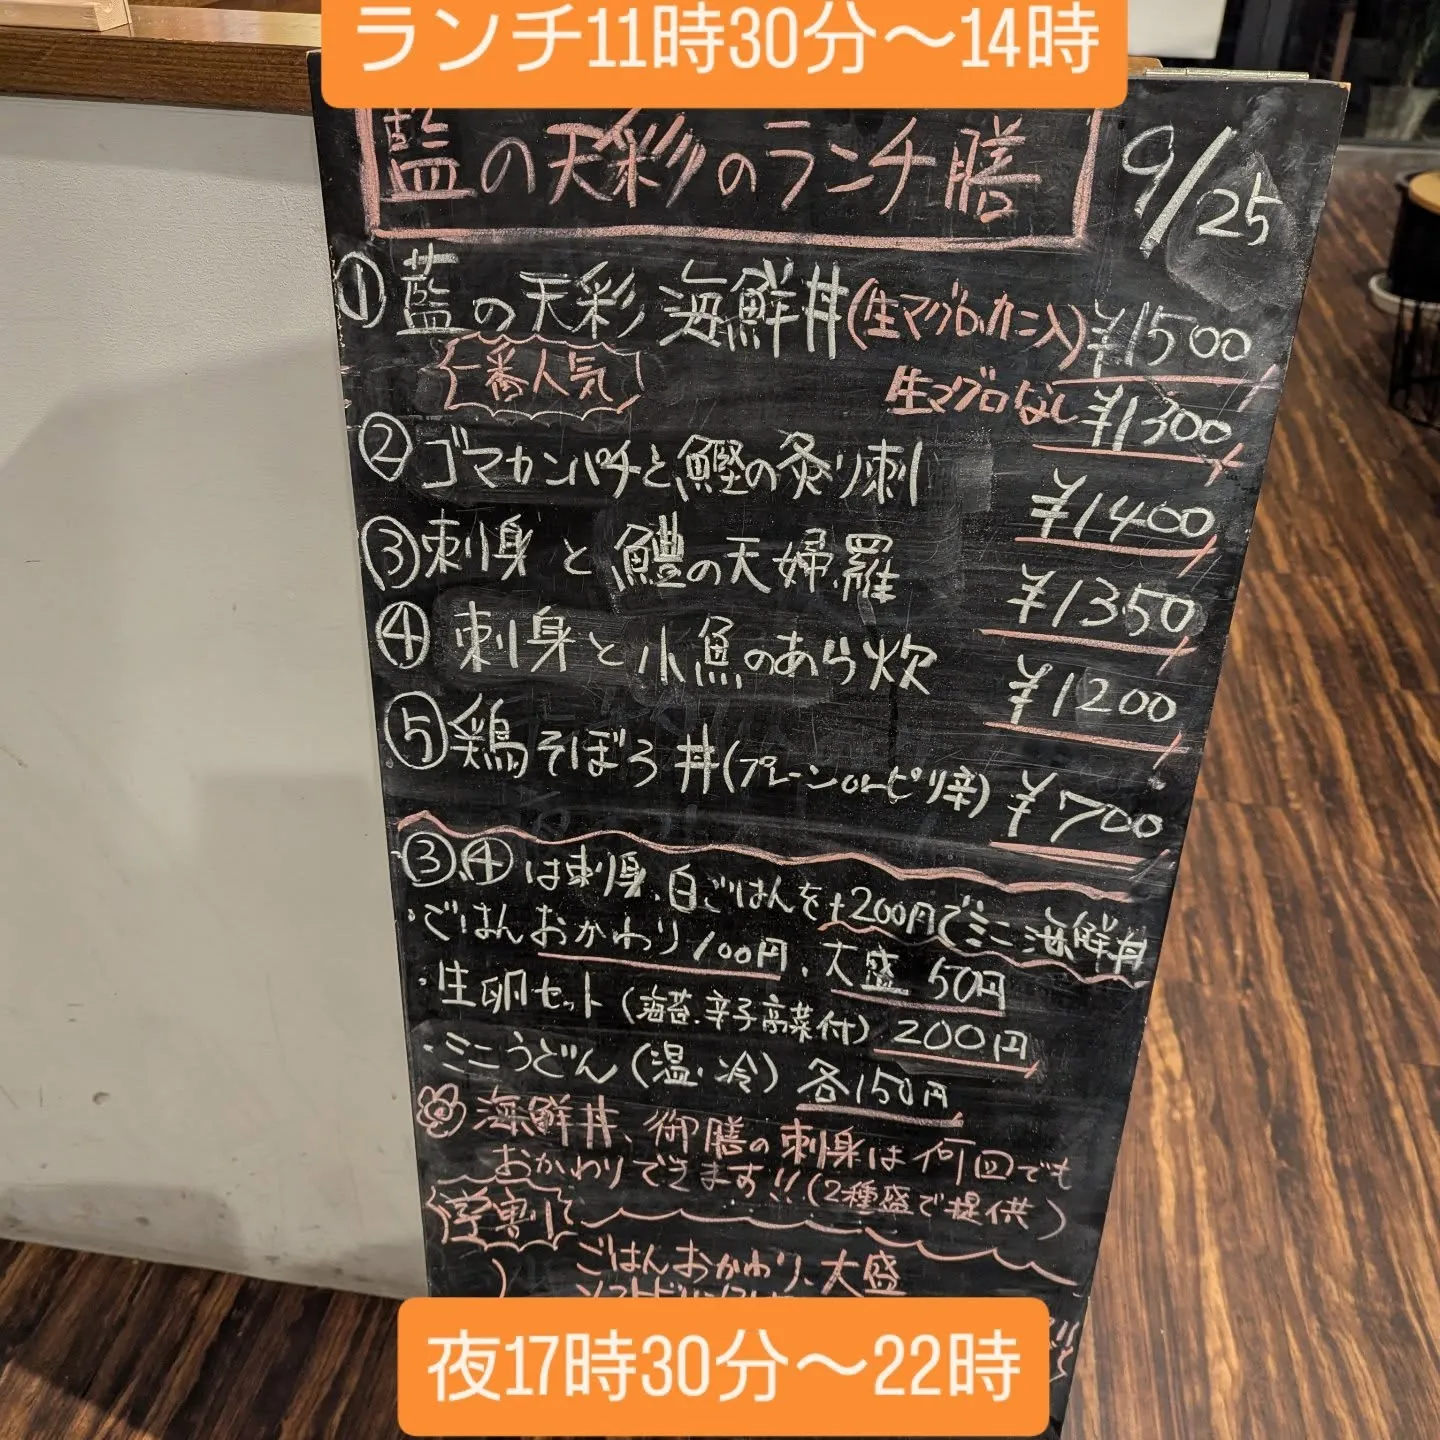 ランチ11時30分〜14時
藍の天彩のランチ膳 9/25
①藍の天彩 海鮮丼(生マグロ、カニ入) ¥1500
一番人気 生マグロなし ¥1300
②ゴマカンパチと鰹の炙り刺 ¥1400
③刺身と鱧の天婦羅 ¥1350
④刺身と小魚のあら炊 ¥1200
⑤鶏そぼろ丼(プレーンorピリ辛) ¥700
③、④は刺身、白ごはんを+200円でミニ海鮮丼
・ごはんおかわり100円、大盛50円
・生卵セット(海苔、辛子高菜付)200円
・ミニうどん(温・冷)各150円
海鮮丼、御膳の刺身は何回でも
おかわりできます!!(2種盛で提供)
学割
ごはんおかわり、大盛
夜17時30分〜22時